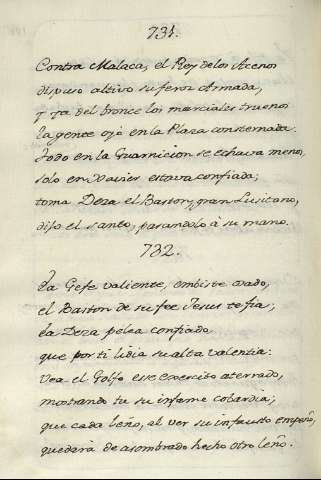 731.
Contra Malaca, el Rey de los Acenos
dispuso altivo su feroz Armada,
y ya del bronce los marciales truenos
la gente oyó en la Plaza consternada.
todo en la Guarnicion se echava menos,
solo en Xavier estava confiada;
toma Deza el Baston, gran Lusitano,
dijo el santo, pasandolo à su mano.
732.
Ea Gefe valiente, embiste osado,
el Baston de su fee Jesus te fia;
ea Deza pelea confiado
que por ti lidia su alta valentia:
Vea el Golfo esse exercito aterrado,
mostrando tu su infame cobardia;
que cada leño, al ver su infausto empeño,
quedarà de asombrado hecho otro leño.